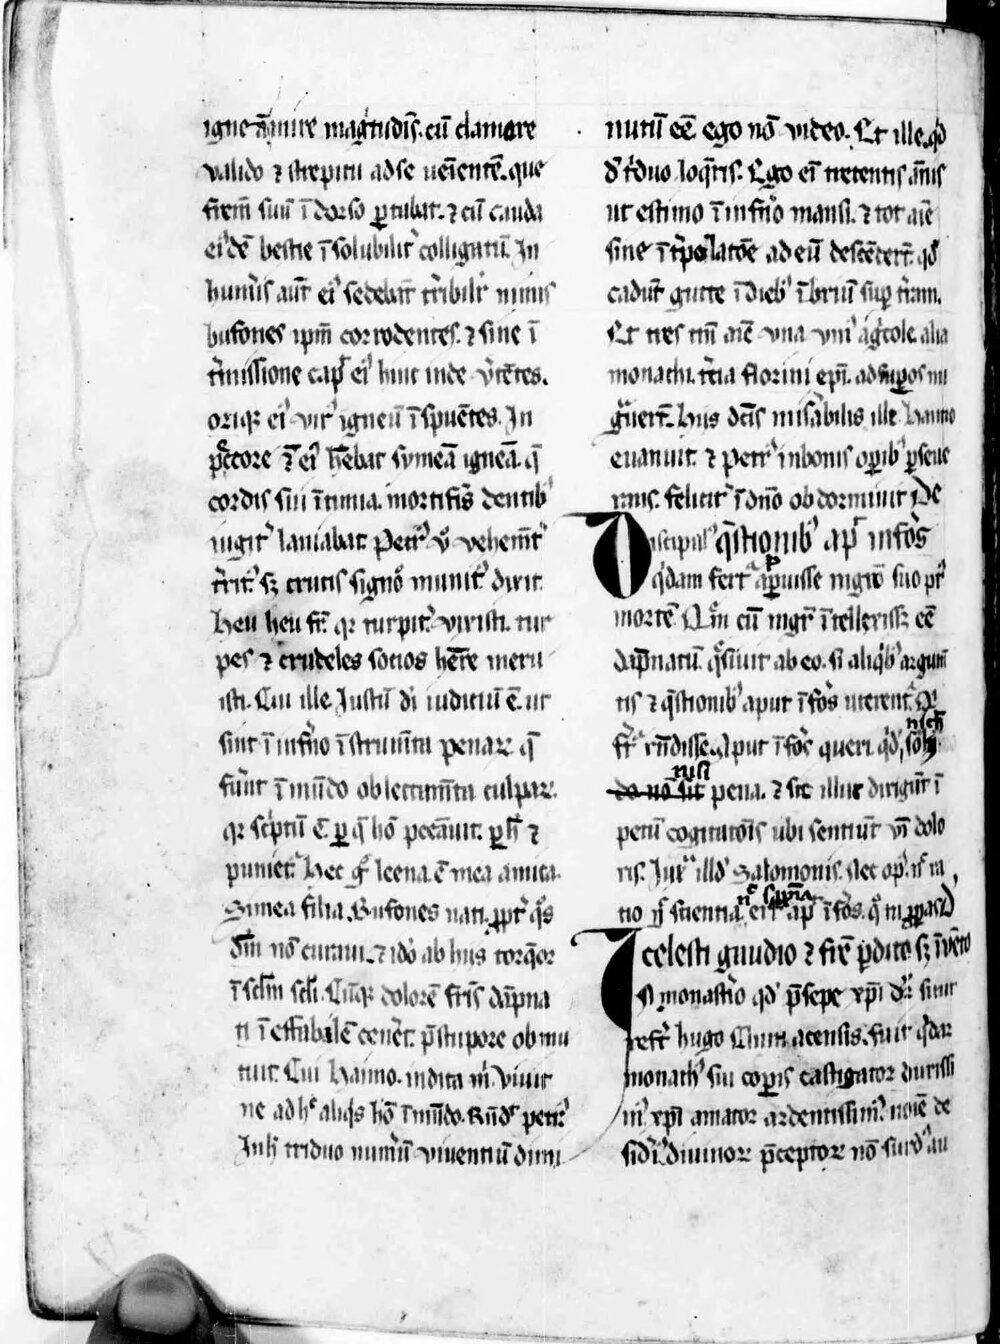 igne a̅mire magͥtudīs. cū clamore
valido ⁊ strepitu ad se ueīentē. que
firem suū ī dorso ꝑtubat. ⁊ cū cauda
eiꝰdē bestie īsolubilitͬ colligatū. In
humeris aut̄ eiꝰ sedebāt tͬribilitͬ nimis
bufones ipm̄ corrodentes. ⁊ sine ī
tͬmissione cap̄ eiꝰ hinc inde vͬtētes.
oriqꝫ eiꝰ virꝰ igneū īspuētes. In
pectore ē eiꝰ hēbat symeā igneā. q̄
cordis sui ītima mortifis dentibꝰ
iugitͬ laniabat. Petrꝰ vͦ vehemēt͛
tͬritꝰ sꝫ crucis signo munitꝰ dixit.
heu heu fr̄ qͬ turpitͬ vixisti. tur
pes ⁊ crudeles socios hēre meru
isti. Cui ille. Iustū dī iudiciū ē. ut
sint ī inferno īstrum̄ta penaꝝ q̄
fūnt ī mūdo oblectam̄ta culpaꝝ.
qͬ scͥptū ē ꝑ q̄ hō peccauit. ꝑ h̄ ⁊
punietͬ. Hec gͦ leena ē mea amica.
Simea filia. Bufones nati. ꝓptͬ qͦs
dm̄ nō curaui. ⁊ idō ab hiis torqeor
ī sclm̄ scl̄i. Cūqꝫ dolorē fris dāpna
ti ī effabilē cerneret. p̄ stupore obmu
tuit. Cui hanno. indica m̄ viuit
ne adhͦ aliqͥs hō ī mūdo. Rn̄dꝰ petrꝰ
In h̄ triduo numū viuentiū dimi
nutū eē ego nō video. Et ille. qd̄
de tͥduo loqͬris. Ego eī trecentis ānis
ut estimo ī infn̄o mansi. ⁊ tot aīe
sine īt̄polacōe ad eū descēdert̄. qd̄
cadūt gutte ī diebꝰ ībriū suꝑ tr̄am.
Et tres tm̄ aīe vna vniꝰ agͥcole. alia
monachi. tͬcia florini epī. ad suꝑos mi
gͣuert̄. Hiis dc̄is miserabilis ille hanno
euanuit. ⁊ petrꝰ in bonis oꝑibꝰ ꝑseue
rans. felicitͬ ī dn̄o obdormiuit. De
Discipulꝰ qͣstionibꝰ ap̄ inferos
qͥdam fertͬ apꝑuisse mgr̄o suo pͦst
mortē. Qm̄ cū mgr̄ ītellexissꝫ eē
dāpnatū. qͣsiuit ab eo. si aliqͥbꝰ argum̄
tis ⁊ qͣstionibꝰ aput īfos uterent̄. Qͥ
fr̄t rn̄disse. Aput īfos queri qd̄ solū nich̄
do nō sit nisi pena. ⁊ sic illuc dirigūt ī
petū cogitatōīs ubi sentiūt vī dolo
ris. Iuxͣ illd̄ Salomonis. Nec opꝰ nͨ ra
tio nͨ scientia nͨ sapīa erit ap̄ īfos. qͦ tu ꝓꝑas. D
e celesti gaudio ⁊ fr̄e ꝑdito sꝫ īvēto
In monasterio qd̄ p̄sepe xpī dr̄ sicut
refert hugo Cluniacensis. fuit qͥdā
monachꝰ sui corꝑis castigator durissi
mꝰ. xpī amator ardentissimꝰ. noīe de
sidr̄iꝰ. diuinoꝝ p̄ceptoꝝ nō surdꝰ au